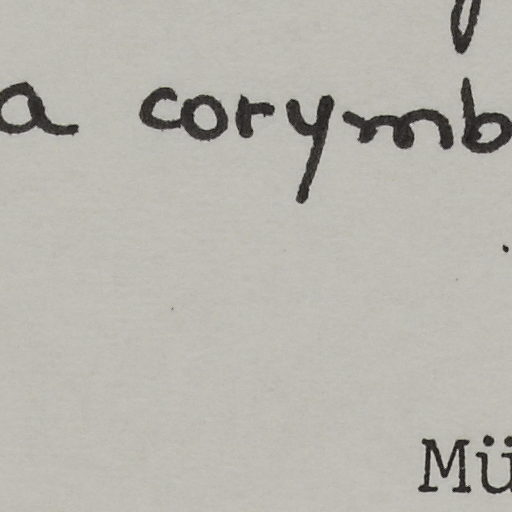 a corymb
Mü